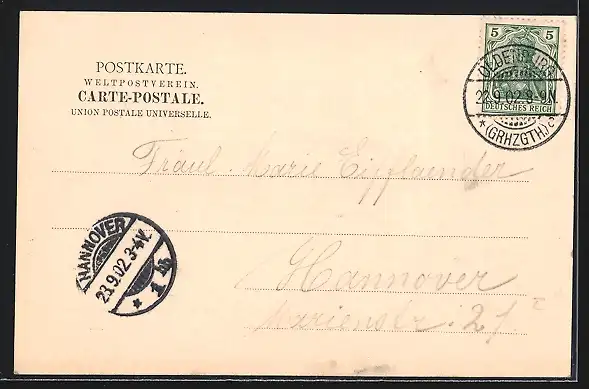 POSTKARTE.
WELTPOSTVEREIN.
CARTE-POSTALE.
UNION POSTALE UNIVERSELLE.
5 5
DEUTSCHES REICH
OLDENBURG
22.9.02.8-9N
*(GRHZGTH.)c
Fräul. Marie
HANNOVER
23.9.02.3-4V.
* 1
Hannover
Marienstr.